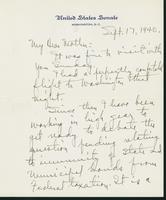 United States Senate
WASHINGTON, D.C.
Sept. 17, 1940.
My Dear Mother:
It was fine to visit with
you Sunday.
I had a perfectly comfortable
flight to Washington that
night.
Since then I have been
working in high gear to
get ready to debate the
question pending relating
to immunity of State and
Municipal bonds from
Federal taxation. It is a